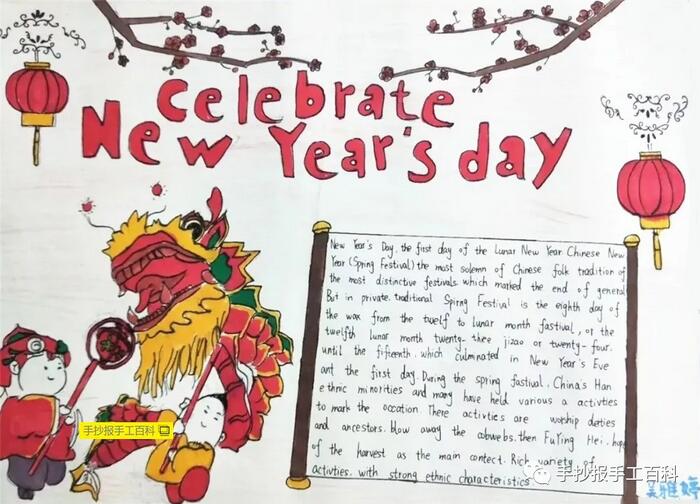 celebrate
New Year's day
New Year's Day, the first day of the Lunar New Year Chinese New
Year (Spring Festival) the most solemn of Chinese folk tradition of
the most distinctive festivals which marked the end of general
But in private. traditional Spirng Festival is the eighth day of
the wax from the twelf to lunar month fastival, or the
twelfth lunar month twenty-thee jizao or twenty-four.
until the fifteenth. which culminated in New Year's Eve
ant the first day. During the spring fastival. China's Han
ethnic minorities and many have held various a activties
to mark the occation. There activties are worship deties
and ancestors. blow away the cobwebs. then FuYing Hei. hope
of the harvest as the main contect. Rich variety of
activities. with strong ethnic characteristics
手抄报手工百科
手抄报手工百科